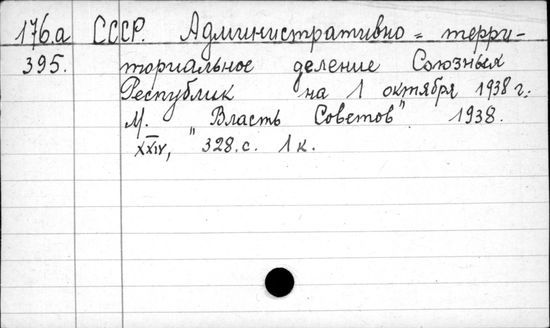 176.а СССР. Административно = терри-
395. ториальное деление Союзных
Республик на 1 октября 1938 г.
М. „Власть Советов" 1938.
XXIV, 328.с. 1 к.